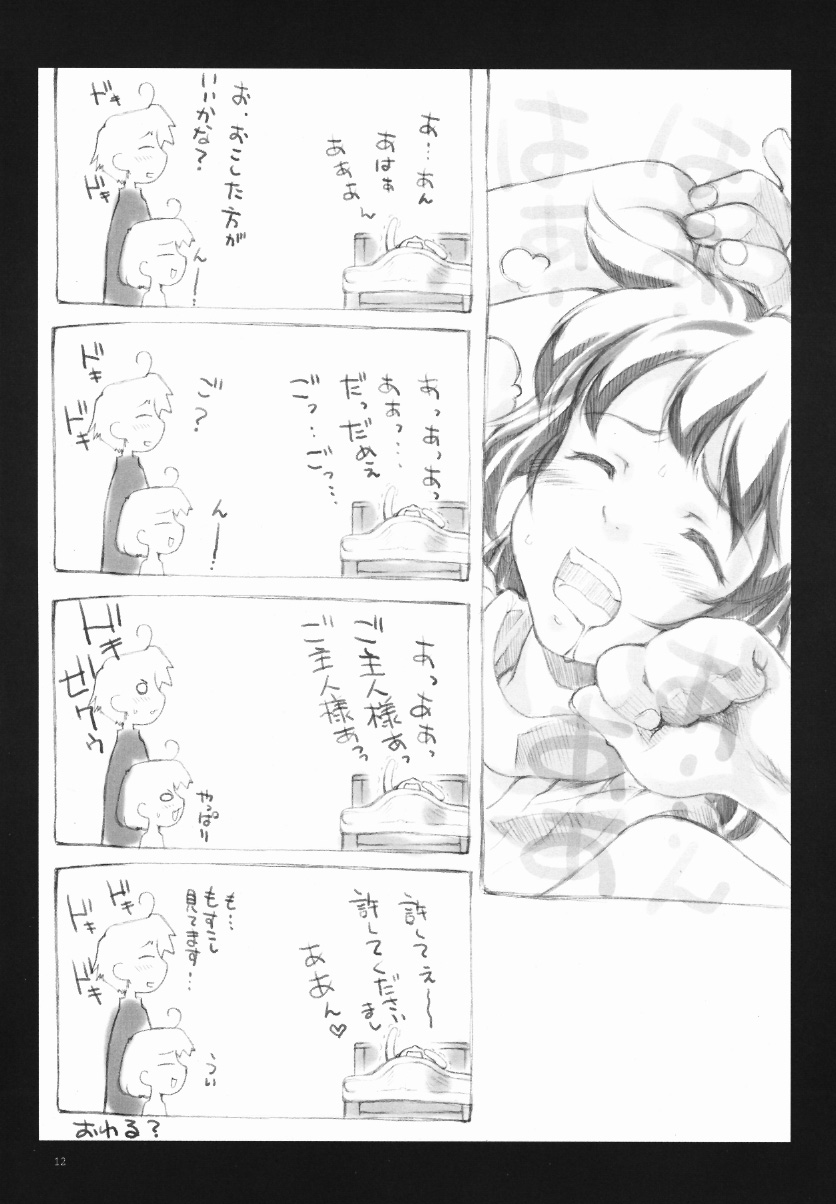 はぁ…ん
はぁ…
は…ん
あぁ
あ…あん
あはぁ
あああん
お、おこした方が
いいかな?
ドキ
ドキ
んー…
あっあっあっ
ああっ…
だっだめぇ
ごっ…ごっ…
ご?
ドキ
ドキ
んー…
あっああっ
ご主人様あっ
ご主人様あっ
ドキ
ゼクゥ
やっぱり
許してぇ〜
許してください
まし
ああん♡
も…
もすこし
見てます…
ドキ
ドキ
ドキ
うい
おわる?
12